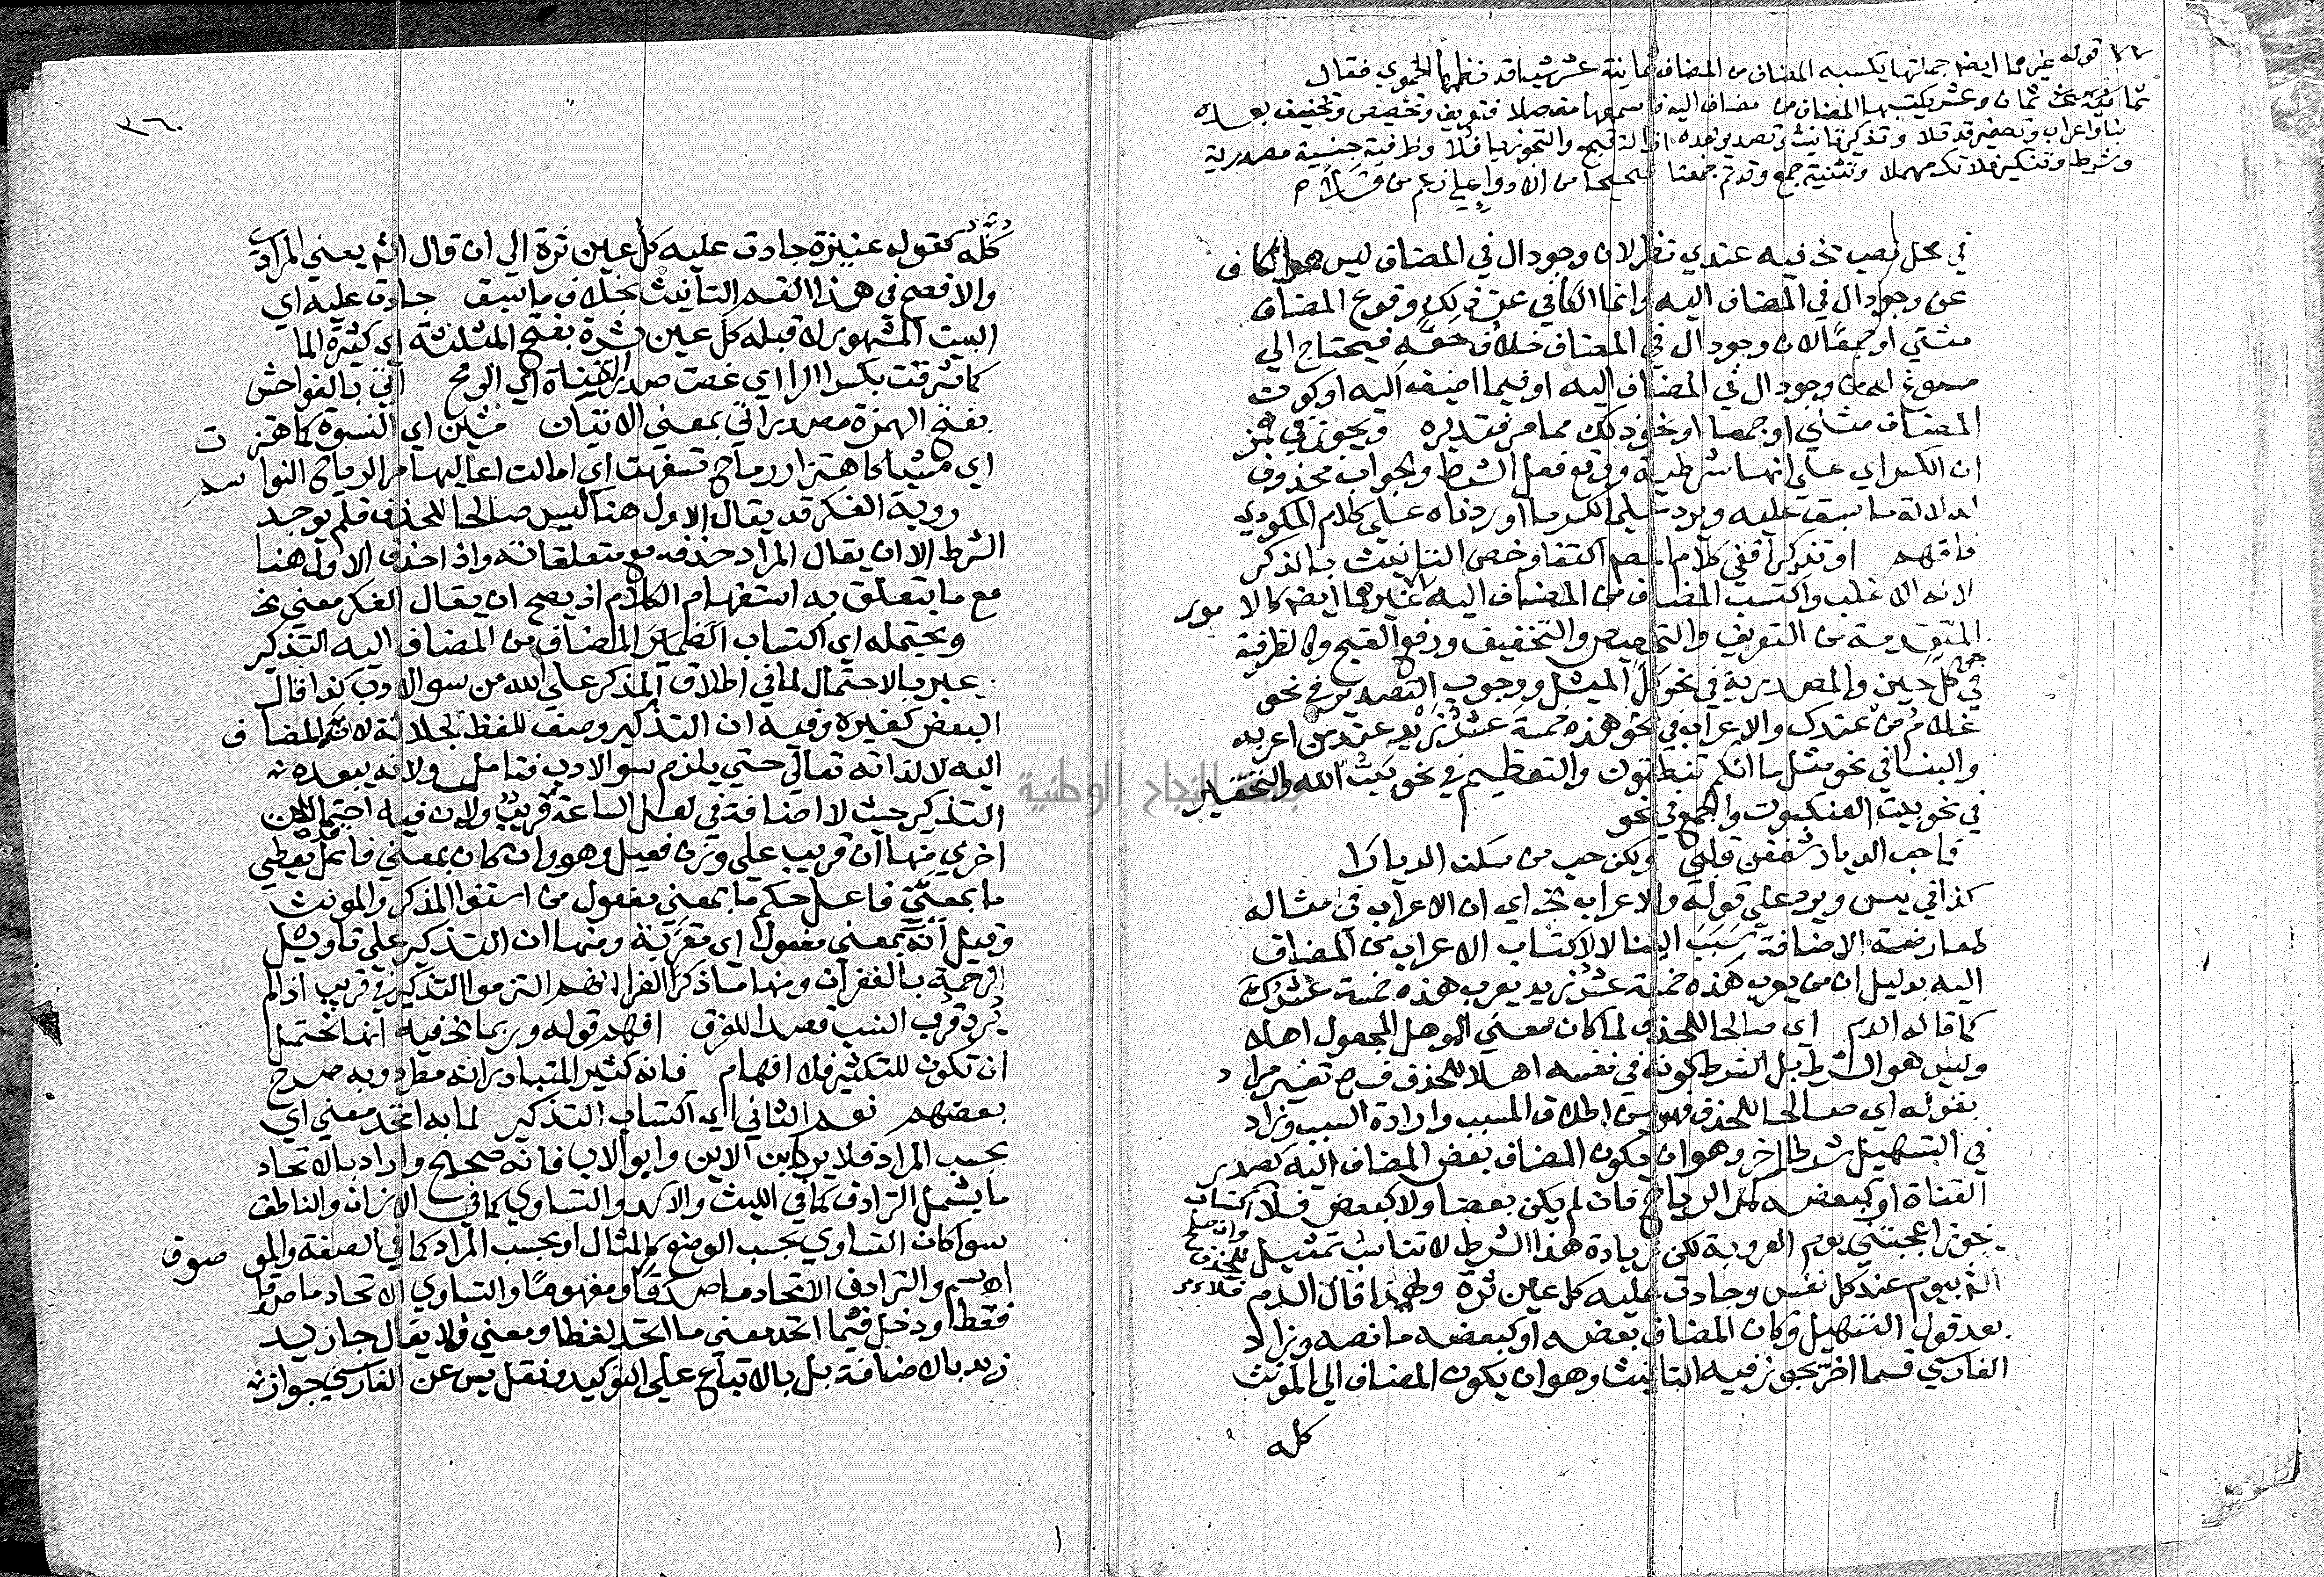 قوله غيرهما ايضا جملة ما يكتسبه المضاف من المضاف ثمانية عشر شيا قد نظمها الحموي فقال
ثمان وعشر يكتسبها المضاف من مضاف اليه فاسمعها مفصلا فتعريف وتخصيص وتخفيف بعده
بنا واعراب وتصغير قد تلا وتذكير تانيث وتصدير بعده ازالة قبح والتجوز يا فلا وظرفية جنسية مصدرية
وشرط وتنكير فلا تك مهملا وتثنية جمع وقد تم جمعنا صحيحا من الادوا على زعم من قلا
في محل نصب الخ فيه عندي نظر لان وجود ال في المضاف ليس هو الكاف
عن وجود ال في المضاف اليه وانما الكافي عن ذلك وقوع المضاف
مثني او جمعا لان وجود ال في المضاف خلاف حقه فيحتاج الي
مسوغ من وجود ال في المضاف اليه او فيما اضيف اليه او كون
المضاف مثني او جمعا او نحو ذلك مما مر فتدبره ويجوز في همز
ان الكسر اي علي انها شرطية ووقع فعل الشرط والجواب محذوف
لدلالة ما سبق عليه ويرد علي الكسر ما اوردناه علي كلام المكودي
فافهم او تذكيرا ففي كلام المصـ اكتفا وخص التانيث بالذكر
لانه الاغلب واكتسب المضاف من المضاف اليه غيرهما ايضا كالامور
المتقدمة من التعريف والتخصيص والتخفيف ورفع القبح وكالظرفية
في كل حين والمصدرية في نحو كل الميل ووجوب التصدير في نحو
غلام من عندك والاعراب في نحو هذه خمسة عشر زيد عند من اعربه
والبنا في نحو مثل ما انكم تنطقون والتعظيم في نحو بيت الله والتحقير
في نحو بيت العنكبوت والجمع في نحو
فما حب الديار شغفن قلبي ولكن حب من سكن الديارا
كذا في يس ويرد علي قوله والاعراب الخ اي ان الاعراب في مثاله
لمعارضة الاضافة سبب البنا لا لاكتساب الاعراب من المضاف
اليه بدليل ان من يعرب هذه خمسة عشر زيد يعرب هذه خمسة عشرك
كما قاله الدم اي صالحا للحذف لما كان معني الوهل المجعول اهلا
وليس هو الشرط بل الشرط كونه في نفسه اهلا للحذف فسره تفسير مراد
بقوله اي صالحا للحذف فهو من اطلاق المسبب وارادة السبب وزاد
في التسهيل شرطا اخر وهو ان يكون المضاف بعض المضاف اليه كصدر
القناة او كبعضه كمر الرياح فان لم يكن بعضا ولا كبعض فلا اكتساب
وان صلح للحذف فلا
نحو اعجبني يوم العروبة لكن زيادة هذا الشرط لا تناسب تمثيل
الشـ بيوم عند كل نفس وجادت عليه كل عين ثرة ولهذا قال الدم
بعد قول التسهيل وكان المضاف بعضه او كبعضه ما نصه وزاد
الفارسي قسما اخر يجوز فيه التانيث وهو ان يكون المضاف الي المونث
كله
٣٦٠
كله كقوله عنيزة جادت عليه كل عين ثرة الي ان قال الشـ يعني المرادي
والافصح في هذا القسم التانيث بخلاف ما سبق جادت عليه اي
البيت المشهور لا قبله كل عين ثرة بفتح المثلثة اي كثيرة الما
كما شرقت بكسر الرا اي غصت صدر القناة اي الرمح اتي بالفواحش
بفتح الهمزة مصدر اتي بمعني الاتيان مشين اي النسوة كما اهتزت
اي مشيا كاهتزاز رماح تسفهت اي امالت اعاليها مر الرياح النواسم
روية الفكر قد يقال الاول هنا ليس صالحا للحذف فلم يوجد
الشرط الا ان يقال المراد حذفه مع متعلقاته واذا حذف الاول هنا
مع ما يتعلق به استقام الكلام اذ يصح ان يقال الفكر معني الخ
ويحتمله اي اكتساب المضاف من المضاف اليه التذكير
عبر بالاحتمال لما في اطلاق المذكر علي الله من سو الادب كذا قال
البعض كغيره وفيه ان التذكير وصف للفظ الجلالة لانه المضاف
اليه لا لذاته تعالي حتي يلزم سو الادب فتامل ولانه يبعده
التذكير حيث لا اضافة في لعل الساعة قريب ولان فيه احتمالات
اخري منها ان قريب علي وزن فعيل وهو وان كان بمعني فاعل قد يعطي
ما بمعني فاعل حكم ما بمعني مفعول من استوا المذكر والمونث
وقيل انه بمعني مفعول اي مقربة ومنها ان التذكير علي تاويل
الرحمة بالغفران ومنها ما ذكر الفرا انهم التزموا التذكير في قريب اذا لم
يرد قرب النسب قصدا للفرق افهم قوله وربما الخ فيه انها تحتمل
ان تكون للتكثير فلا افهام فانه كثير المتبادر انه مطرد وبه صرح
بعضهم نعم الثاني اي اكتساب التذكير لما به اتحد معني اي
بحسب المراد فلا يرد ابن الابن وابو الاب فانه صحيح واراد بالاتحاد
ما يشمل الترادف كما في الليث والاسد والتساوي كما في الانسان والناطق
سوا كان التساوي بحسب الوضع كالمثال او بحسب المراد كما في الصفة والموصوف
اذ الاسم والترادف الاتحاد ما صدقا ومفهوما والتساوي الاتحاد ما صدقا
فقط ودخل فيما اتحد معني ما اتحد لفظا ومعني فلا يقال جا زيد
زيد بالاضافة بل بالاتباع علي التوكيد ونقل يس عن الفارسي جوازه
جامعة النجاح الوطنية